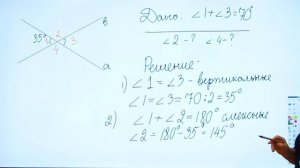 35° 2 в
1 3
4
a
Дано: ∠1+∠3=70°
∠2-? ∠4-?
Решение:
1) ∠1=∠3 - вертикальные
∠1=∠3=70:2=35°
2) ∠1+∠2=180° смежные
∠2=180°-35°=145°